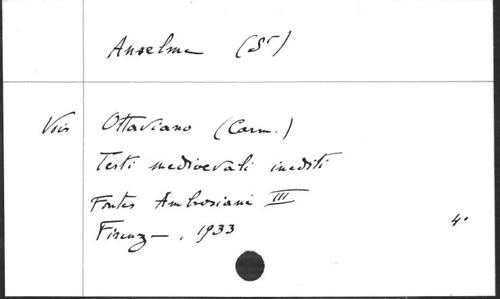 Anselme (St)
Vois Ottaviano (Carm.)
Testi medioevali inediti
Fontes Ambrosiani III
Firenze, 1933
4°